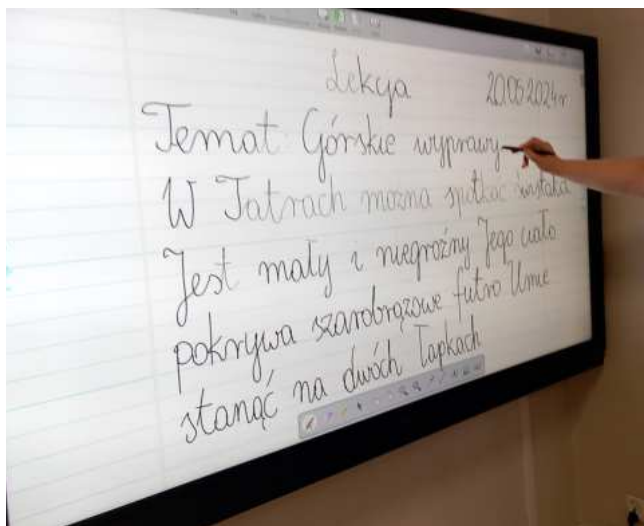 Lekcja 20.05.2024r
Temat Górskie wyprawy
W Tatrach można spotkać świstaka
Jest mały i niegroźny Jego ciało
pokrywa szarobrązowe futro Umie
stanąć na dwóch łapkach